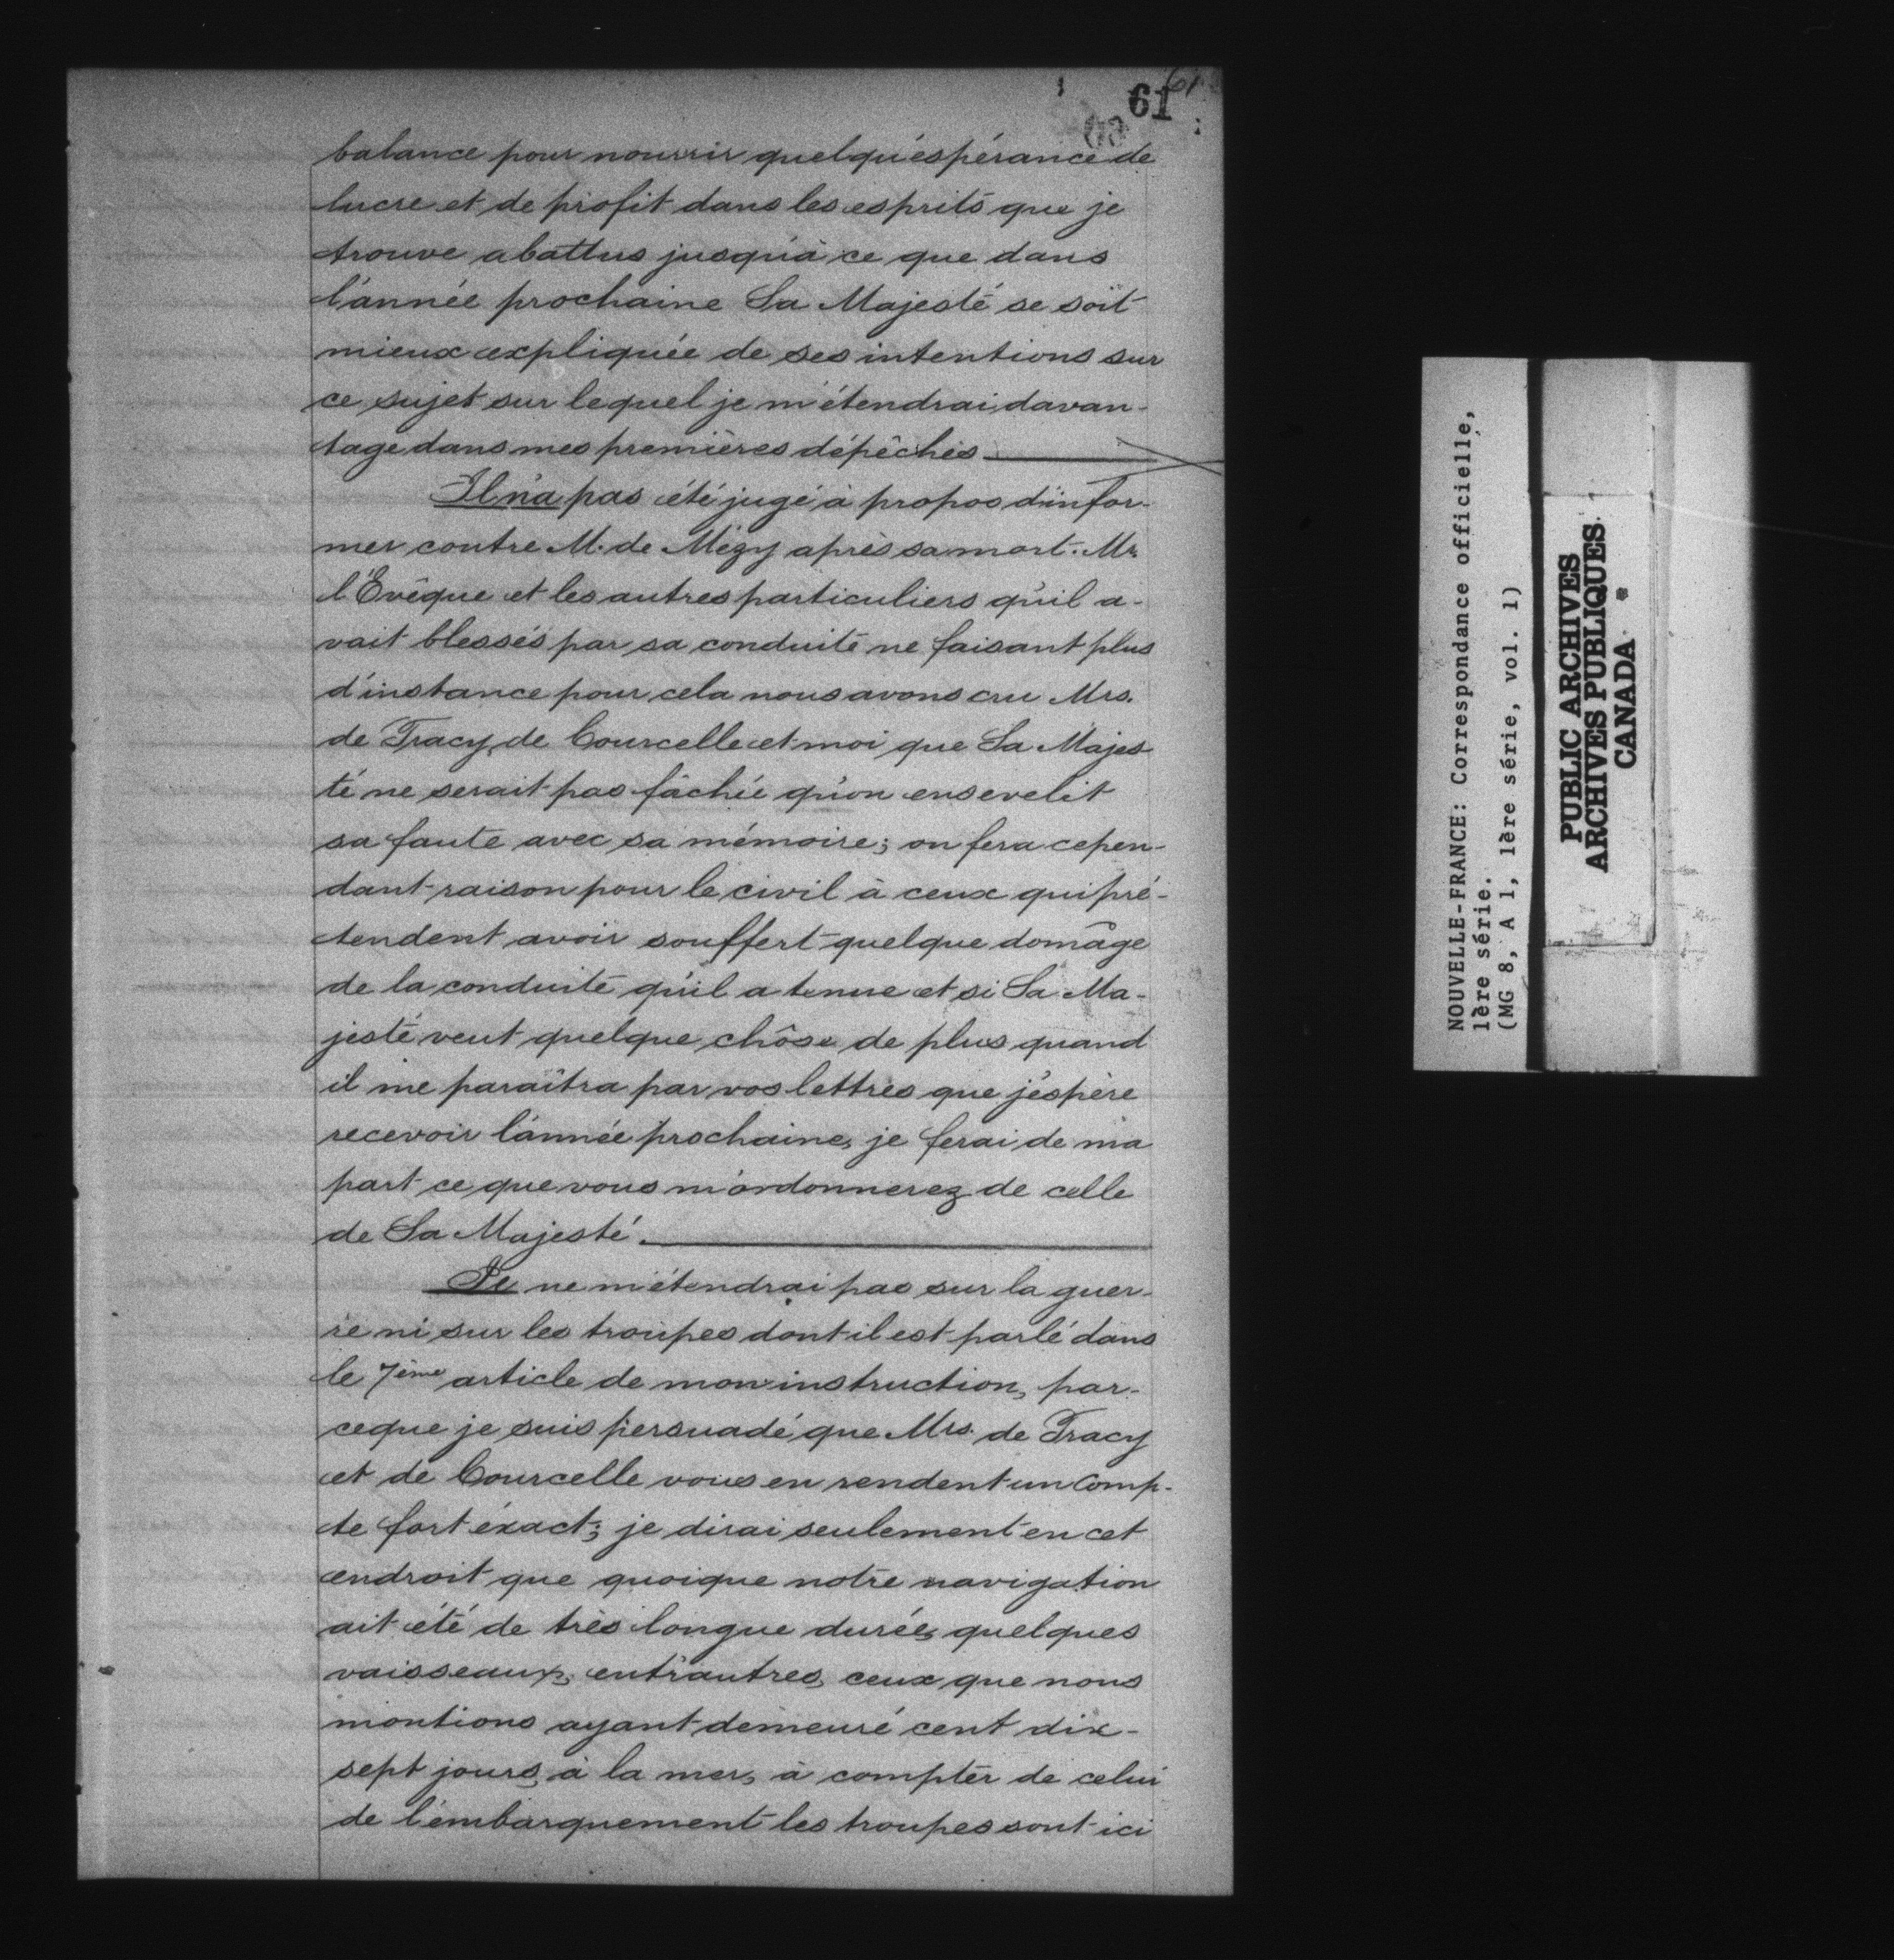 61
61
60
balance pour nourrir quelqu'espérance de
lucre et de profit dans les esprits que je
trouve abattus jusqu'à ce que dans
l'année prochaine Sa Majesté se soit
mieux expliquée de ses intentions sur
ce sujet sur lequel je m'étendrai davan-
tage dans mes premières dépêches
Il n'a pas été jugé à propos d'infor-
mer contre M. de Mézy après sa mort. Mr.
l'Evêque et les autres particuliers qu'il a-
vait blessés par sa conduite ne faisant plus
d'instance pour cela nous avons cru Mrs.
de Tracy, de Courcelle et moi que Sa Majes
té ne serait pas fâchée qu'on ensevelit
sa faute avec sa mémoire; on fera cepen-
dant raison pour le civil à ceux qui pré-
tendent avoir souffert quelque domâge
de la conduite qu'il a tenue et si Sa Ma-
jesté veut quelque chôse de plus quand
il me paraîtra par vos lettres que j'éspère
recevoir l'année prochaine, je ferai de ma
part ce que vous m'ordonnerez de celle
de Sa Majesté.
Je ne m'étendrai pas sur la guer-
re ni sur les troupes dont il est parlé dans
le 7ème article de mon instruction, par-
ceque je suis persuadé que Mrs. de Tracy
et de Courcelle vous en rendent un comp-
te fort éxact; je dirai seulement en cet
endroit que quoique notre navigation
ait été de très longue durée, quelques
vaisseaux, entr'autres, ceux que nous
montions ayant demeuré cent dix-
sept jours, à la mer, à compter de celui
de l'embarquement les troupes sont ici
NOUVELLE-FRANCE: Correspondance officielle,
1ère série.
(MG 8, A 1, 1ère série, vol. 1)
PUBLIC ARCHIVES
ARCHIVES PUBLIQUES
CANADA